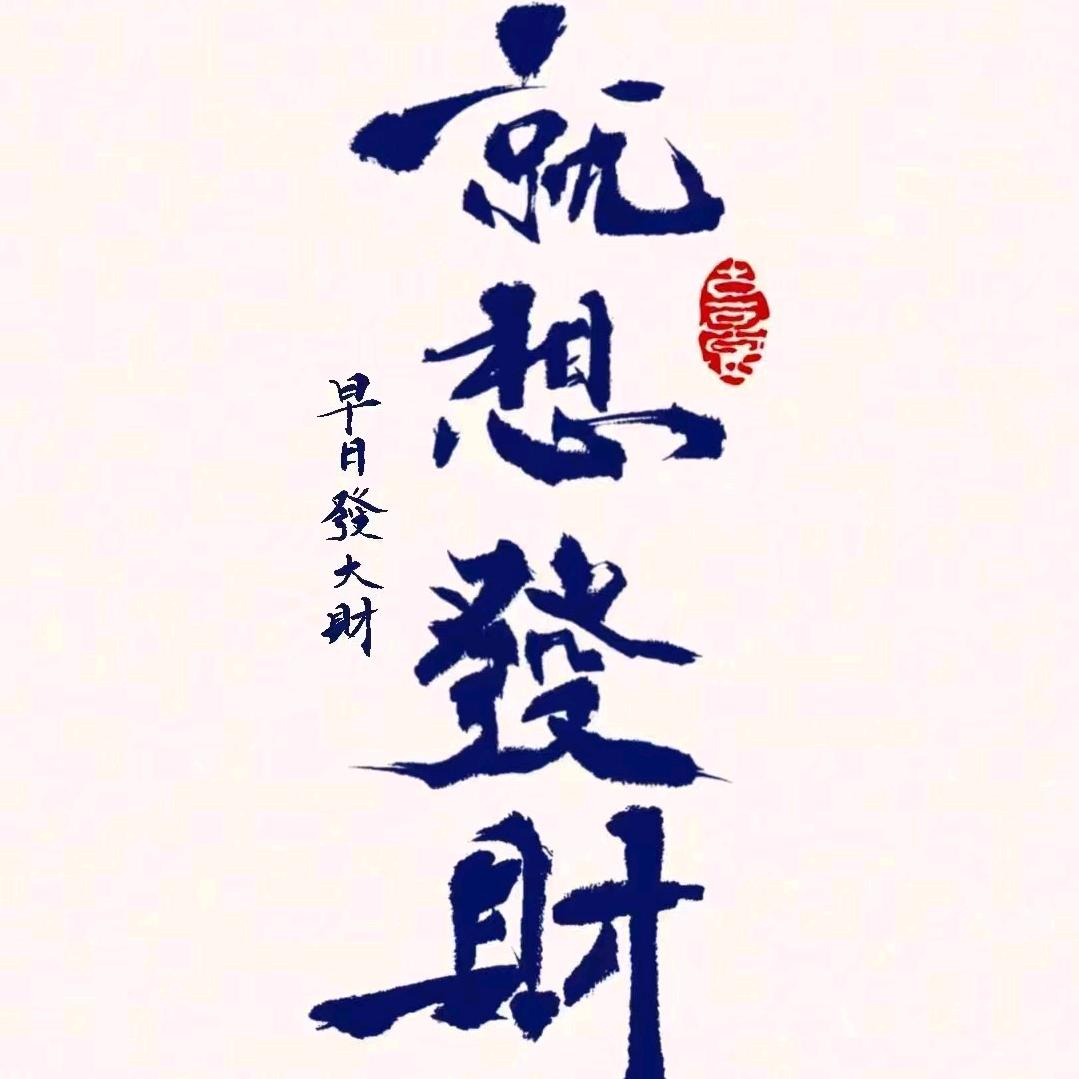 就想發財
早日發大財